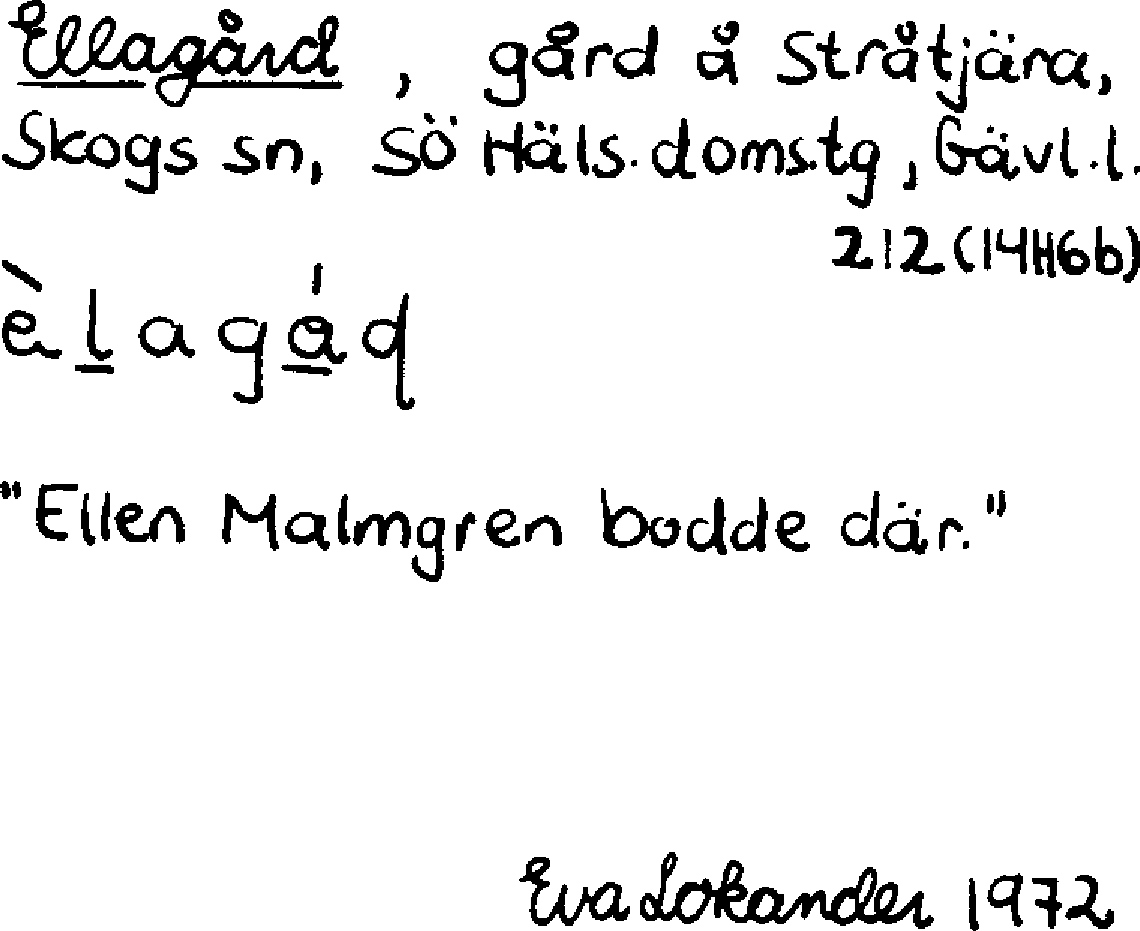 Ellagård, gård å Stråtjära,
Skogs sn, Sö Häls. domstg, Gävl.l.
212 (14H6b)
è l̲ a g ǻ̲ ɖ
"Ellen Malmgren bodde där."
Eva Lokander 1972